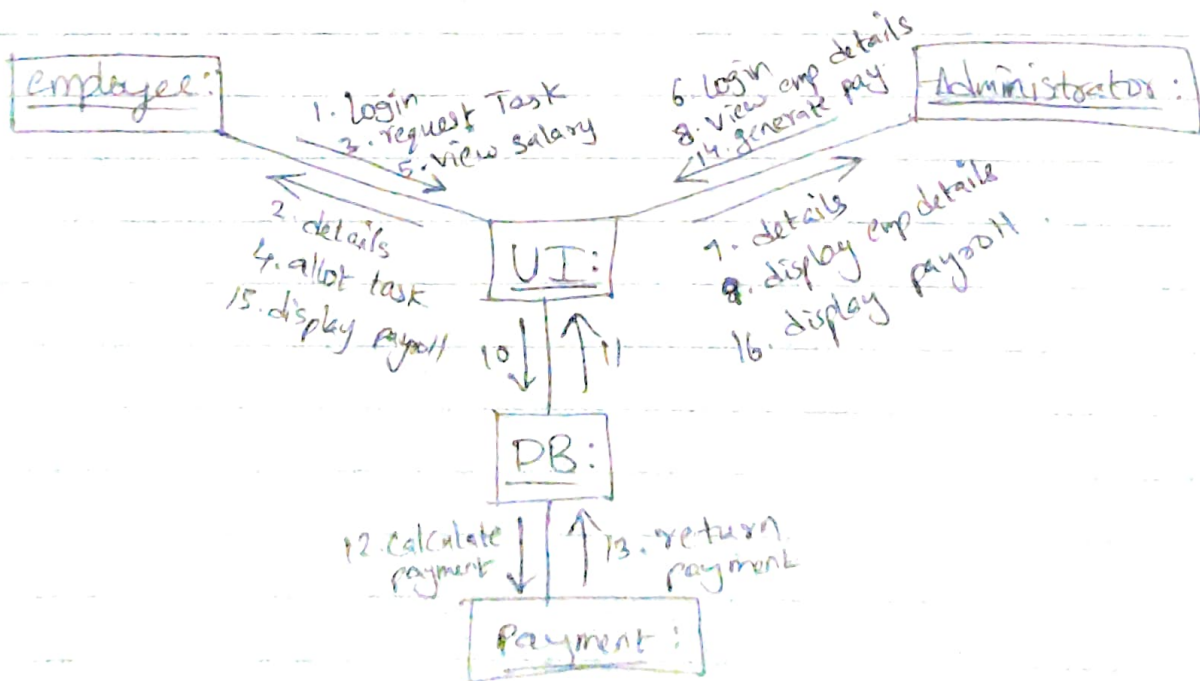 employee:
1. Login
3. request Task
5. view salary
2. details
4. allot task
15. display payroll
6. Login
8. view emp details
14. generate pay
Administrator:
7. details
9. display emp details
16. display payroll
UI:
10
11
DB:
12. calculate
payment
13. return
payment
Payment: